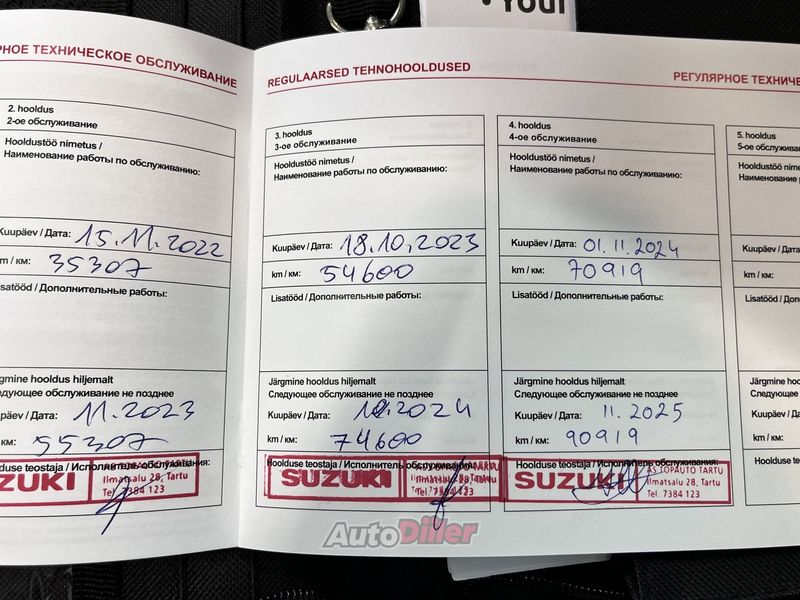 Your
РНОЕ ТЕХНИЧЕСКОЕ ОБСЛУЖИВАНИЕ
2. hooldus
2-ое обслуживание
Hooldustöö nimetus /
Наименование работы по обслуживанию:
Kuupäev / Дата: 15.11.2022
km / км: 35307
Lisatööd / Дополнительные работы:
Järgmine hooldus hiljemalt
Следующее обслуживание не позднее
Kuupäev / Дата: 11.2023
км: 55307
Hoolduse teostaja / Исполнитель обслуживания:
SUZUKI
AS TOPAUTO TARTU
Ilmatsalu 28, Tartu
Tel. 7384 123
REGULAARSED TEHNOHOOLDUSED
3. hooldus
3-ое обслуживание
Hooldustöö nimetus /
Наименование работы по обслуживанию:
Kuupäev / Дата: 18.10.2023
km / км: 54600
Lisatööd / Дополнительные работы:
Järgmine hooldus hiljemalt
Следующее обслуживание не позднее
Kuupäev / Дата: 10.2024
km / км: 74600
Hoolduse teostaja / Исполнитель обслуживания:
SUZUKI
AS TOPAUTO TARTU
Ilmatsalu 28, Tartu
Tel. 7384 123
РЕГУЛЯРНОЕ ТЕХНИЧЕ
4. hooldus
4-ое обслуживание
Hooldustöö nimetus /
Наименование работы по обслуживанию:
Kuupäev / Дата: 01.11.2024
km / км: 70919
Lisatööd / Дополнительные работы:
Järgmine hooldus hiljemalt
Следующее обслуживание не позднее
Kuupäev / Дата: 11.2025
km / км: 90919
Hoolduse teostaja / Исполнитель обслуживания:
SUZUKI
AS TOPAUTO TARTU
Ilmatsalu 28, Tartu
Tel. 7384 123
5. hooldus
5-ое обслужив
Hooldustöö nim
Наименование р
Kuupäev / Дата
km / км:
Lisatööd / Допол
Järgmine hooldus
Следующее обслу
Kuupäev / Дата:
km / км:
Hoolduse teosta
AutoDiller